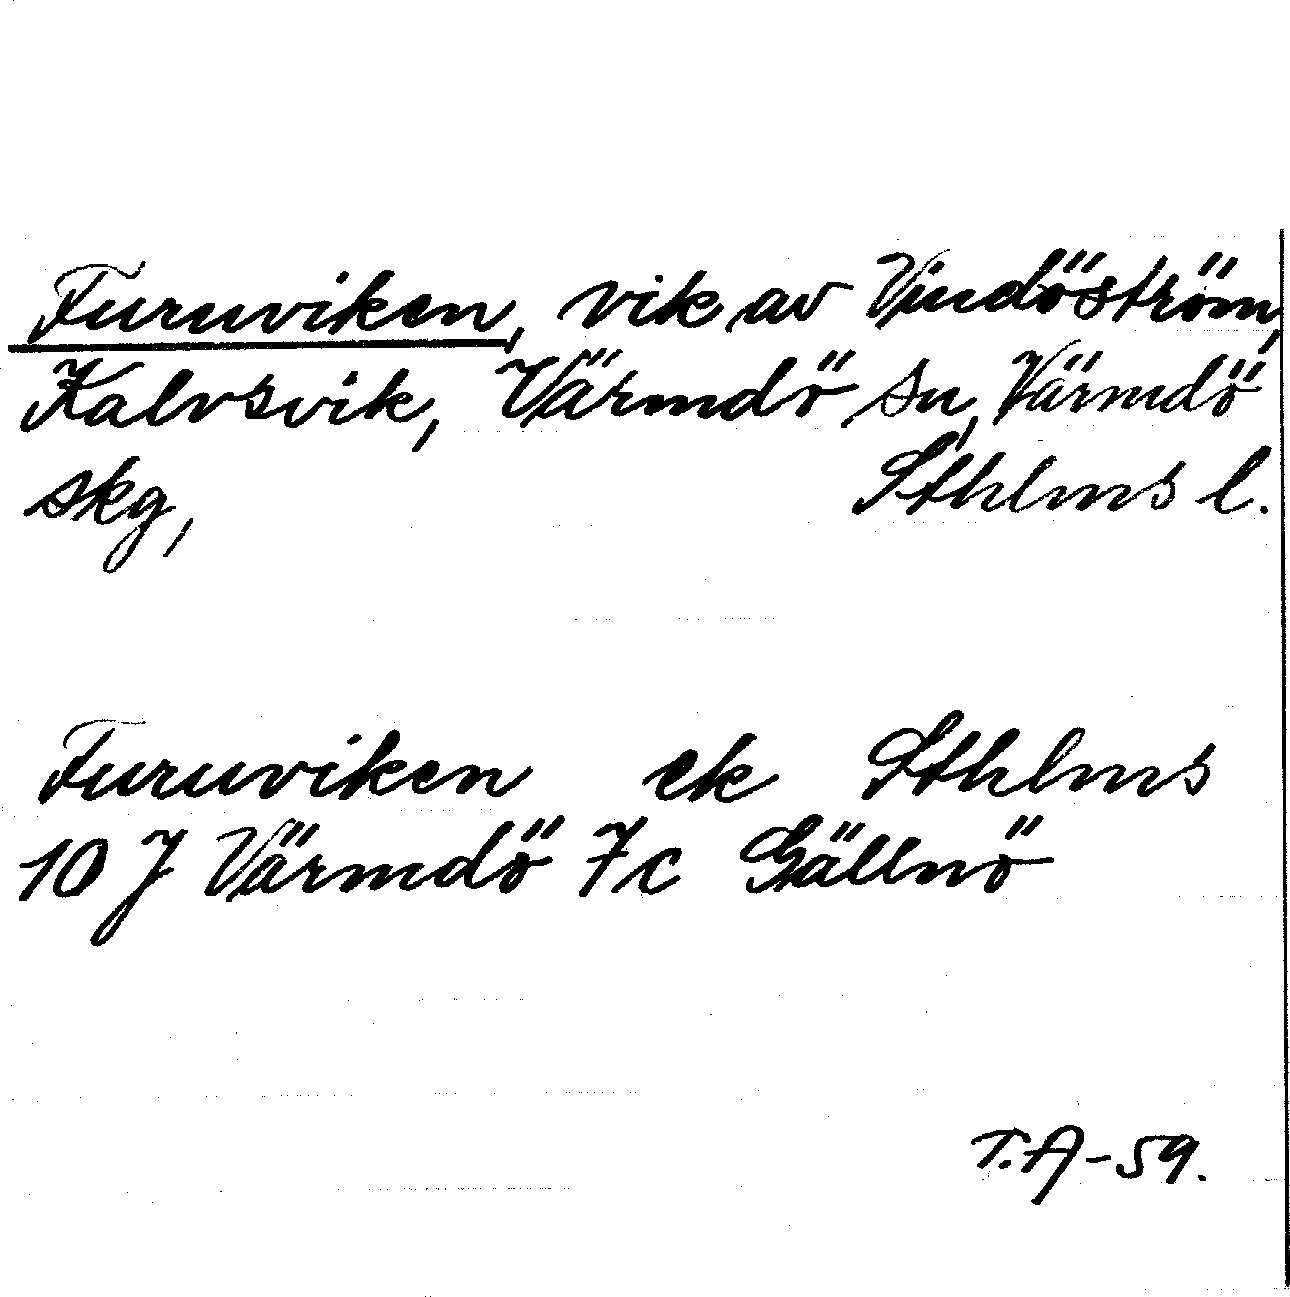 Furuviken, vik av Vindöström,
Kalvsvik, Värmdö sn, Värmdö
skg, Sthlms l.
Furuviken ek Sthlms
10 J Värmdö 7c Gällnö
T.A-59.